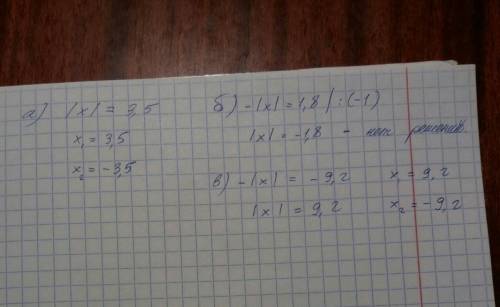 а) |x| = 3,5
x₁ = 3,5
x₂ = -3,5
б) -|x| = 1,8 | : (-1)
|x| = -1,8 - нет решений.
в) -|x| = -9,2
|x| = 9,2
x₁ = 9,2
x₂ = -9,2